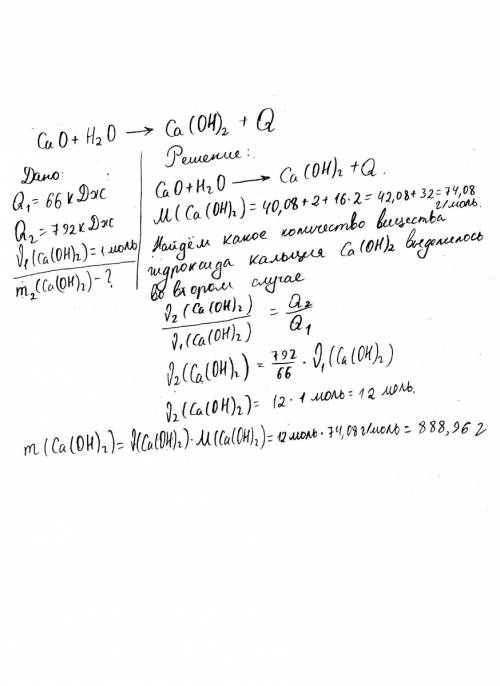 CaO + H2O → Ca(OH)2 + Q
Дано:
Q1 = 66 кДж
Q2 = 792 кДж
ν1(Ca(OH)2) = 1 моль
m2(Ca(OH)2) - ?
Решение:
CaO + H2O → Ca(OH)2 + Q.
M(Ca(OH)2) = 40,08 + 2 + 16·2 = 42,08 + 32 = 74,08 г/моль.
Найдём какое количество вещества
гидроксида кальция Ca(OH)2 выделилось
во втором случае
ν2(Ca(OH)2) / ν1(Ca(OH)2) = Q2 / Q1
ν2(Ca(OH)2) = 792/66 · ν1(Ca(OH)2)
ν2(Ca(OH)2) = 12 · 1 моль = 12 моль.
m(Ca(OH)2) = ν(Ca(OH)2) · M(Ca(OH)2) = 12 моль · 74,08 г/моль = 888,96 г